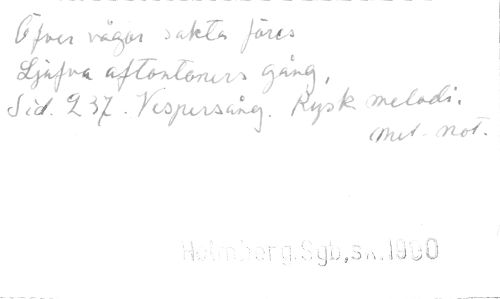 Öfver vågor sakta föres
Ljufva aftontoners gång,
Sid. 237. Vespersång. Rysk melodi.
met. not.
Holmberg.Sgb,sk.1900